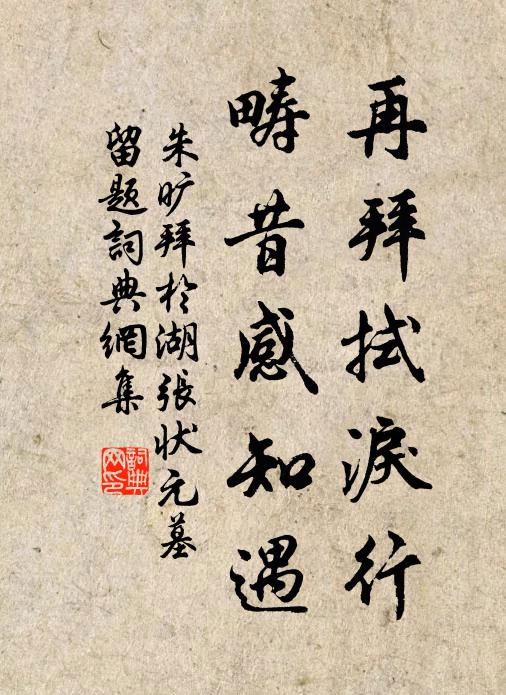 再拜拭淚行
疇昔感知遇
朱旷拜於湖張状元墓
留題詞典網集
詞典网印